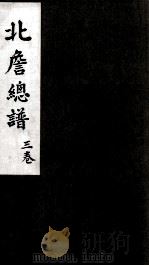 北詹總譜
三卷